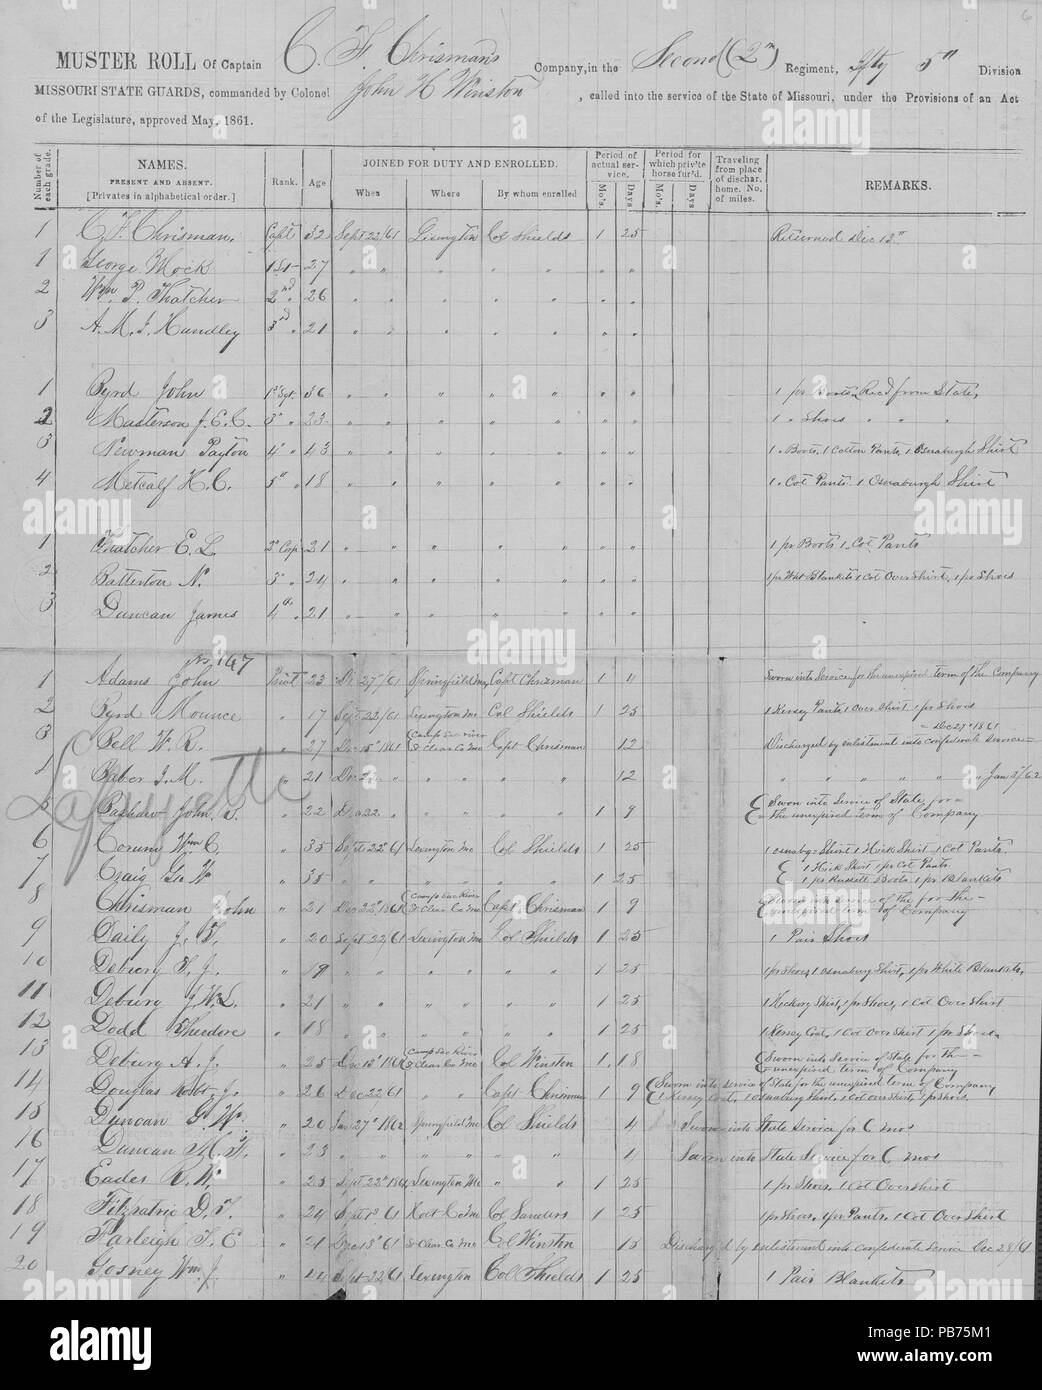 6
MUSTER ROLL of Captain C. F. Chrisman's Company, in the Second (2nd) Regiment, 5" Division
MISSOURI STATE GUARDS, commanded by Colonel John H Winston, called into the service of the State of Missouri, under the Provisions of an Act
of the Legislature, approved May, 1861.
Number of each grade. NAMES. PRESENT AND ABSENT. [Privates in alphabetical order.] Rank. Age JOINED FOR DUTY AND ENROLLED. When Where By whom enrolled Period of actual service. Mo's. Days Period for which priv'te horse fur'd. Mo's. Days Traveling from place of dischar. home. No. of miles. REMARKS.
1 C. F. Chrisman, Capt 32 Sept 22/61 Lexington Col Shields 1 25 Returned Dec 13"
1 George Mock 1st " 27 " " " " " "
2 Wm P. Thatcher 2nd " 26 " " " " " "
3 A. M. J. Hundley 3rd " 21 " " " " " "
1 Byrd John 1st Sgt. 36 " " " " " " 1 pr Boots Recd from State,
2 Masterson J. E. C. 3" " 23 " " " " " " 1 " Shoes " " "
3 Newman Payton 4" " 43 " " " " " " 1 " Boots, 1 Cotton Pants, 1 Osnaburgh Shirt
4 Metcalf H. C. 5" " 18 " " " " " " 1 " Cot Pants 1 Osnaburgh Shirt
1 Thatcher E. L. 2" Corp 21 " " " " " " 1 pr Boots 1 Cot Pants
2 Batterton N. 3" " 24 " " " " " " 1 pr Wht Blankets 1 Cot Over Shirt, 1 pr Shoes
3 Duncan James 4th " 21 " " " " " "
No. 147
1 Adams John Privt 23 27/61 Springfield Mo, Capt Chrisman 1 4 Sworn into Service for the unexpired term of the Company
2 Byrd Mounce " 17 Sept 22/61 Lexington Mo Col Shields 1 25 1 Kersey Pants 1 Over Shirt 1 pr Shoes
3 Bell W. R. " 27 Dec 15" 1861 Camp Sac River St Clair Co Mo Capt Chrisman 12 Discharged by enlistment into confederate service Dec 27" 1861
J. M. " 21 Dec " " " " 12 " " " " " Jan 3"/62
5 John S. " 22 Dec 22 " " " 1 9 Sworn into Service of State for the unexpired term of Company
Lafayette
6 Corum Wm C. " 35 Sept 22" 61 Lexington Mo Col Shields 1 25 1 osnabg Shirt 1 Hick Shirt 1 Cot Pants.
7 Craig Geo W " 35 " " " " 1 25 1 Hick Shirt 1 pr Cot Pants 1 pr Russett Boots 1 pr Blankets
8 Chrisman John " 21 Dec 22" 1861 Camp Sac River St Clair Co Mo Capt Chrisman 1 9 Sworn into service of the for the unexpired term of Company
9 Daily J. T. " 20 Sept 22/61 Lexington Mo Col Shields 1 25 1 Pair Shoes
10 J. " 19 " " " " 1 25 1 pr Shoes, 1 osnaburg Shirt, 1 pr White Blankets,
11 Wm L. " 21 " " " " 1 25 1 Hickory Shirt, 1 pr Shoes, 1 Cot Over Shirt
12 Dodd Theodore " 18 " " " " 1 25 1 Kersey Coat, 1 Cot Over Shirt 1 pr Shoes
13 A. J. " 25 Dec 13" 1861 Camp Sac River St Clair Co Mo Col Winston 1 18 Sworn into Service of State for the unexpired term of Company
14 Douglas Robt. J. " 26 Dec 22 61 " " Capt Chrisman 1 9 Sworn into service of State for the unexpired term of Company 1 Kersey Coat, 1 Osnaburg Shirt, 1 Cot over Shirt 1 pr Shoes.
15 Duncan G. W. " 20 Jan 27" 1862 Springfield Mo Col Shields 4 Sworn into State Service for 6 mos
16 Duncan M. F. " 23 " " " " 4 Sworn into State Service for 6 mos
17 Eades R. W. " 25 Sept 22" 1861 Lexington Mo " " 1 25 1 pr Shoes, 1 Cot Over Shirt
18 Fitzpatric D. T. " 24 Sept 18 61 Holt Co Mo Col Sanders 1 25 1 pr Shoes, 1 pr Pants, 1 Cot Over Shirt
19 Farleigh T. E " 21 Dec 13" 61 St Clair Co Mo Col Winston 15 Discharged by enlistment into confederate service Dec 28/61
20 Gosney Wm J. " 44 Sept 22/61 Lexington Col Shields 1 25 1 Pair Blankets
alamy
Image ID: PB75M1
www.alamy.com